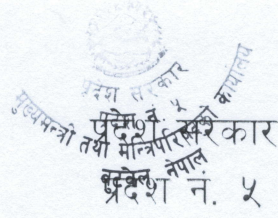 प्रदेश सरकार
मुख्यमन्त्री तथा मन्त्रिपरिषद्को कार्यालय
प्रदेश नं. ५
बुटवल, नेपाल
प्रदेश सरकार
प्रदेश नं. ५